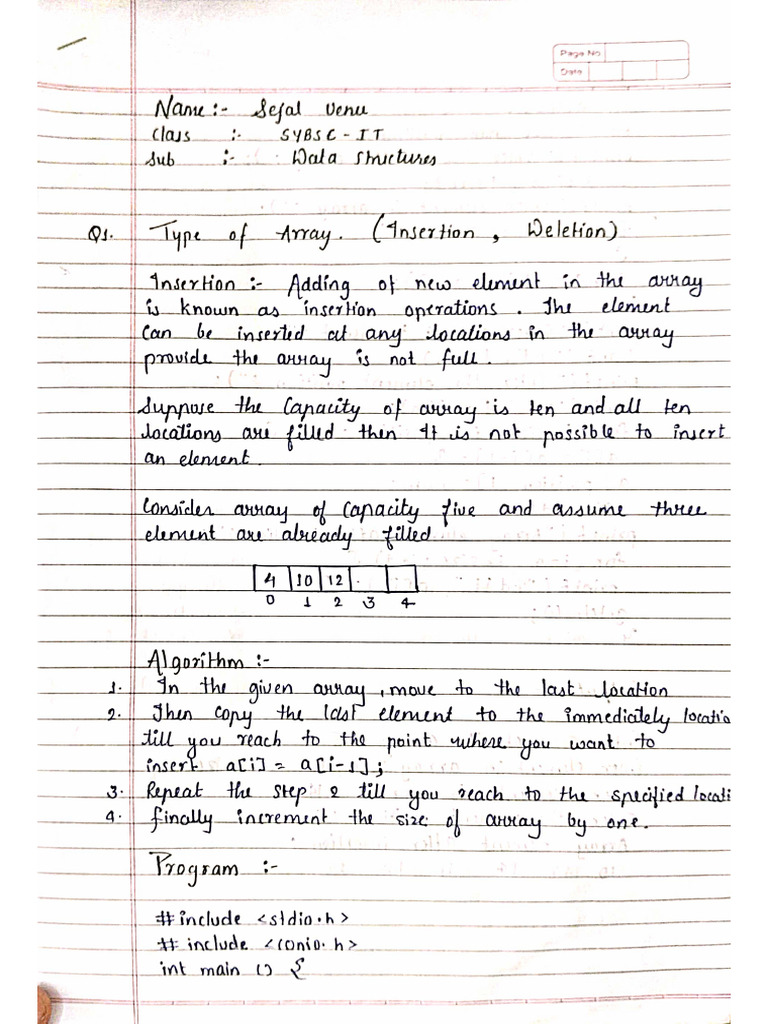 Page No
Date
Name :- Sejal Venu
Class :- SYBSC-IT
Sub :- Data Structures
Q1. Type of Array. (Insertion , Deletion)
Insertion :- Adding of new element in the array
is known as insertion operations. The element
Can be inserted at any locations in the array
provide the array is not full.
Suppose the Capacity of array is ten and all ten
locations are filled then it is not possible to insert
an element.
Consider array of Capacity five and assume three
element are already filled
4 10 12
0 1 2 3 4
Algorithm :-
1. In the given array , move to the last location
2. Then copy the last element to the immediately locatio
till you reach to the point where you want to
insert a[i] = a[i-1];
3. Repeat the step 2 till you reach to the specified locati
4. finally increment the size of array by one.
Program :-
#include <stdio.h>
# include <conio.h>
int main () {